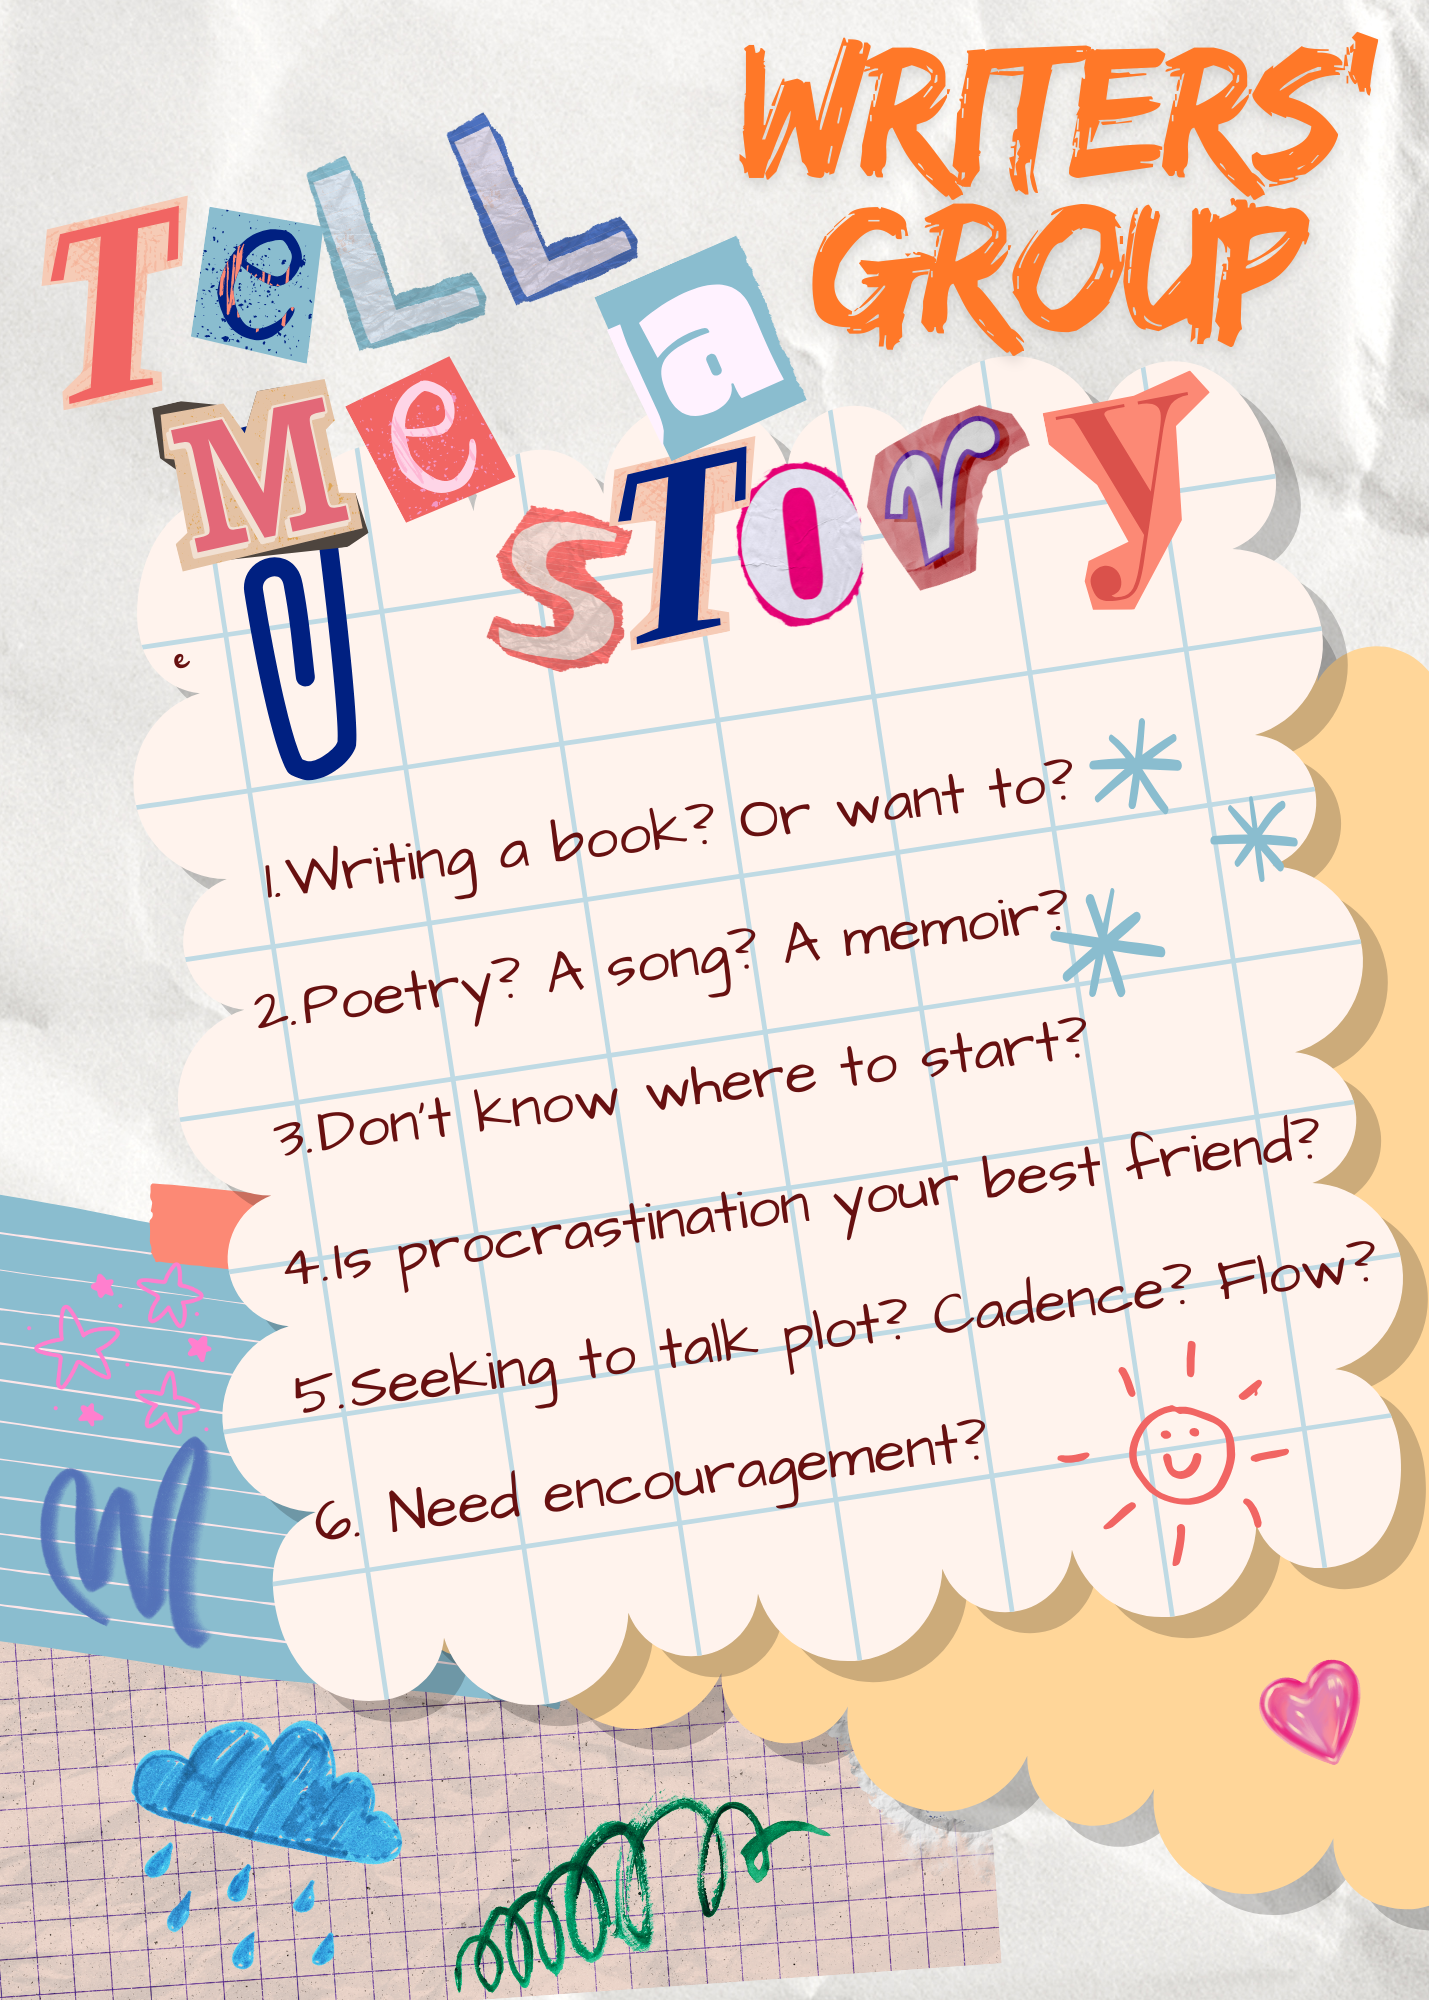 WRITERS'
GROUP
TeLL
a
Me
STOrY
e
1.Writing a book? Or want to?
2.Poetry? A song? A memoir?
3.Don't know where to start?
4.Is procrastination your best friend?
5.Seeking to talk plot? Cadence? Flow?
6. Need encouragement?